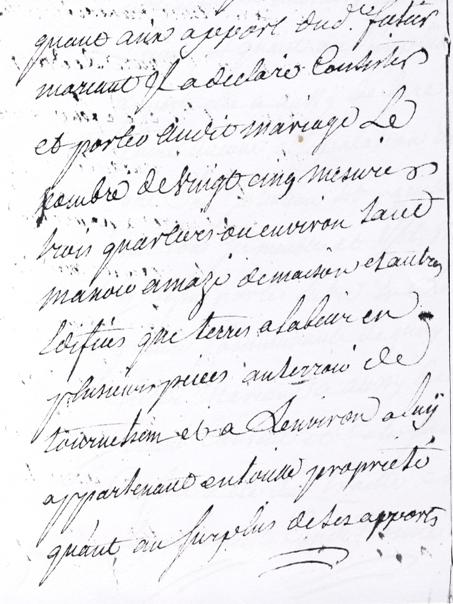 quant aux apport dud. futur
mariant Il a declaré Consister
et porter audit mariage Le
nombre de vingt cinq mesures
trois quartiers ou environ tant
manoir amazé de maison et autres
Edifices que terres a labeur en
plusieurs pieces au terroir de
tournehem et a Lenviron a luy
appartenant en toutte proprieté
quant au surplus de ses apports